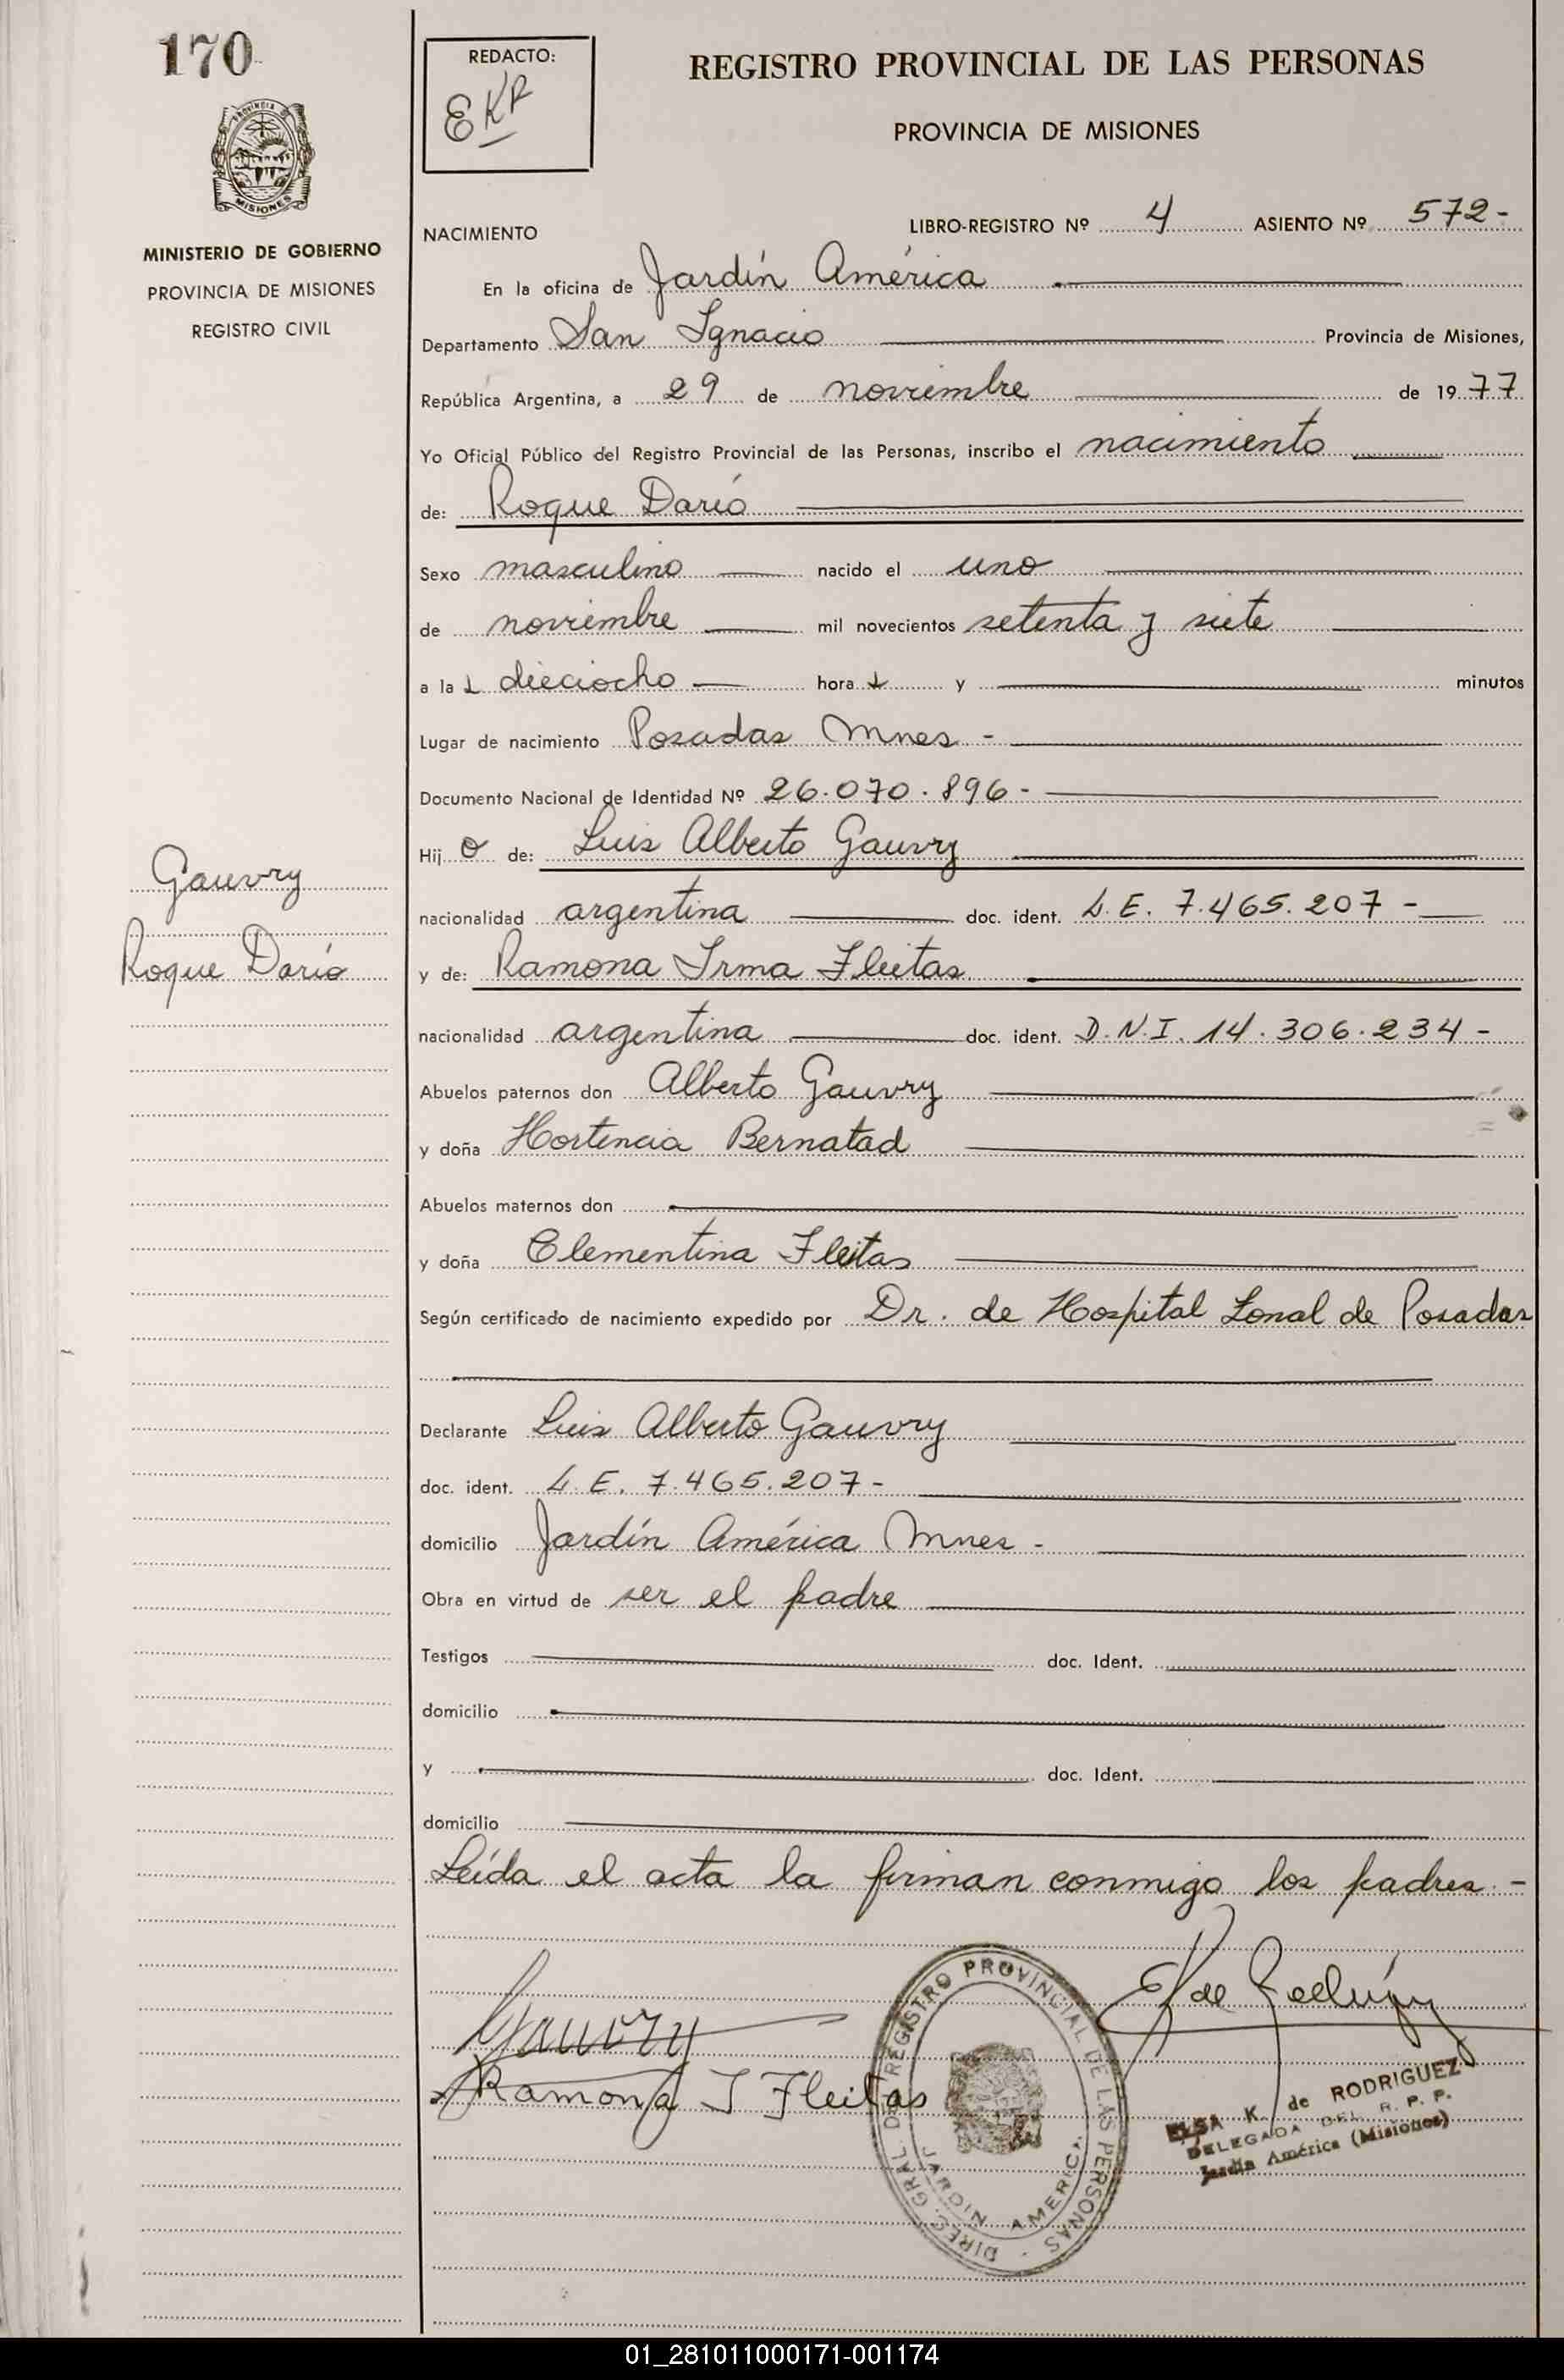 170
REDACTO:
EKR
REGISTRO PROVINCIAL DE LAS PERSONAS
PROVINCIA DE MISIONES
PROVINCIA
MISIONES
MINISTERIO DE GOBIERNO
PROVINCIA DE MISIONES
REGISTRO CIVIL
NACIMIENTO
LIBRO-REGISTRO Nº 4 ASIENTO Nº 572-
En la oficina de Jardín América
Departamento San Ignacio Provincia de Misiones,
República Argentina, a 29 de noviembre de 1977
Yo Oficial Público del Registro Provincial de las Personas, inscribo el nacimiento
de: Roque Darío
Sexo masculino nacido el uno
de noviembre mil novecientos setenta y siete
a la s dieciocho hora s y minutos
Lugar de nacimiento Posadas Mnes -
Documento Nacional de Identidad Nº 26.070.896-
Hij o de: Luis Alberto Gauvry
nacionalidad argentina doc. ident. L.E. 7.465.207-
y de: Ramona Irma Fleitas
nacionalidad argentina doc. ident. D.N.I. 14.306.234-
Abuelos paternos don Alberto Gauvry
y doña Hortencia Bernatad
Abuelos maternos don
y doña Clementina Fleitas
Según certificado de nacimiento expedido por Dr. de Hospital Zonal de Posadas
Declarante Luis Alberto Gauvry
doc. ident. L.E. 7.465.207-
domicilio Jardín América Mnes -
Obra en virtud de ser el padre
Testigos doc. Ident.
domicilio
y doc. Ident.
domicilio
Leída el acta la firman conmigo los padres.-
Gauvry
Roque Darío
Gauvry
Ramona I Fleitas
DIREC. GRAL DE REGISTRO PROVINCIAL DE LAS PERSONAS
JARDIN AMERICA
ELSA K. de RODRIGUEZ
DELEGADA DEL R. P. P.
Jardín América (Misiones)
01_281011000171-001174